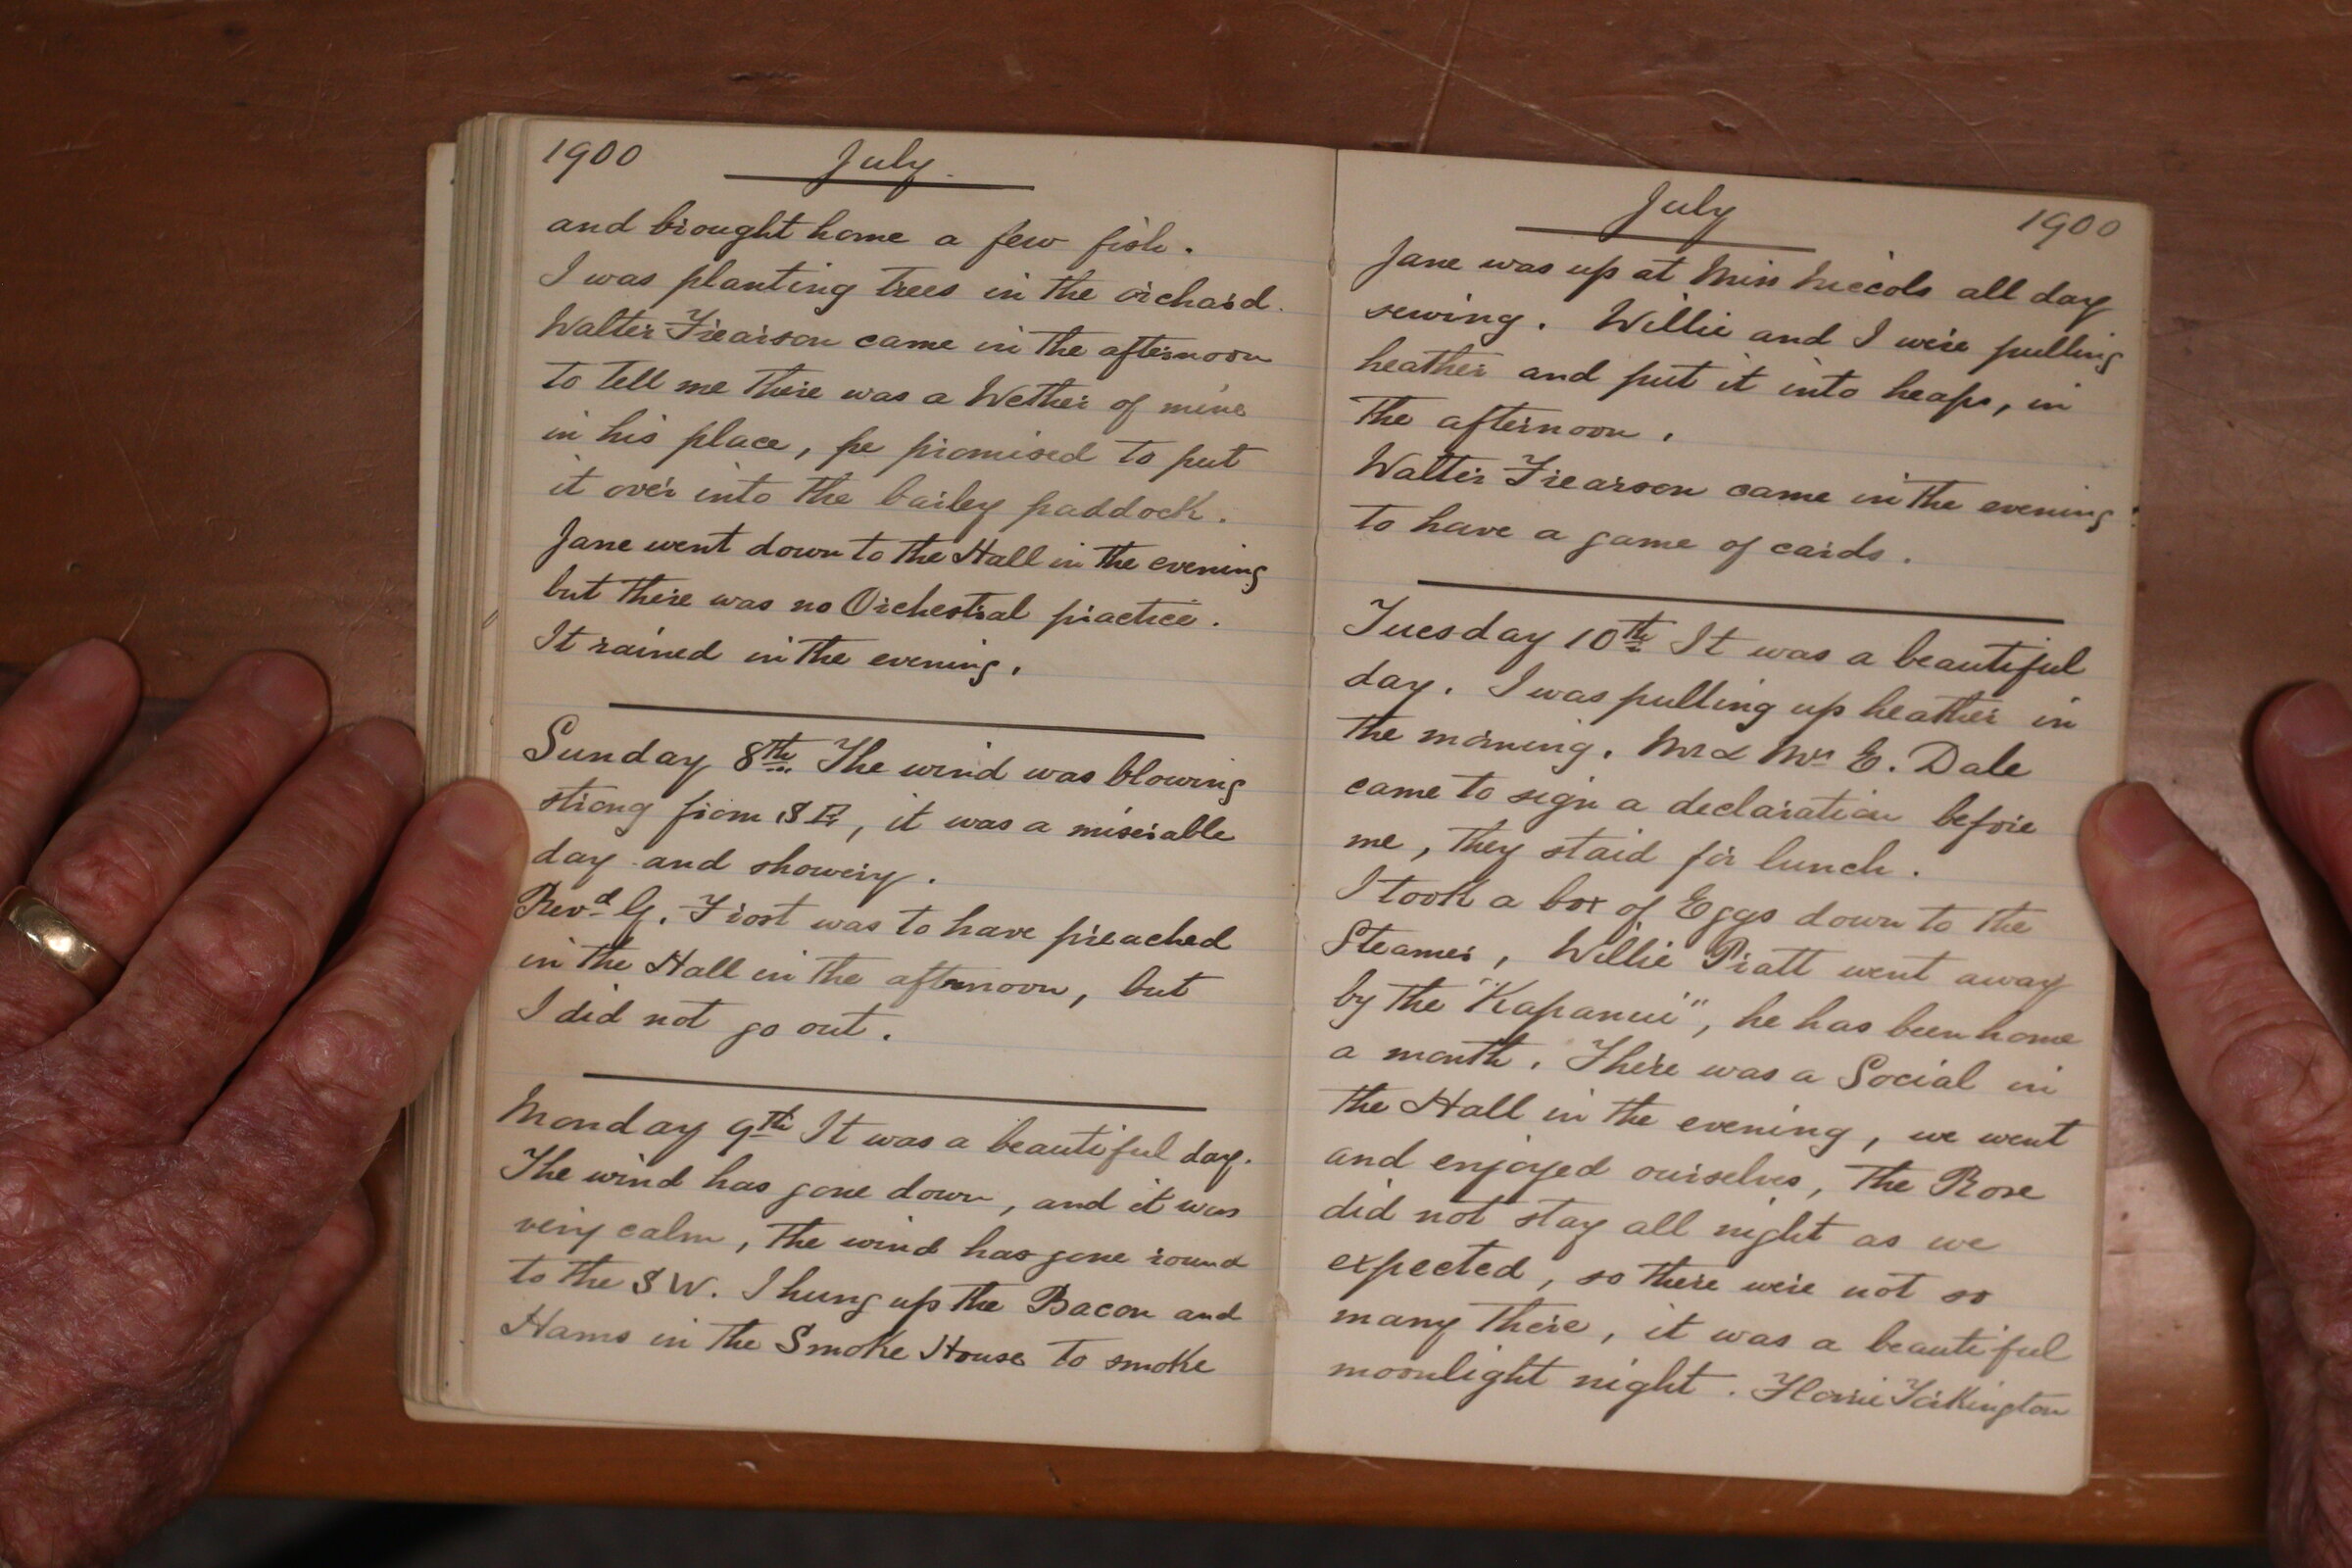 1900 July.
and brought home a few fish.
I was planting trees in the orchard.
Walter Frearson came in the afternoon
to tell me there was a Wether of mine
in his place, he promised to put
it over into the barley paddock.
Jane went down to the Hall in the evening
but there was no Orchestral practice.
It rained in the evening.
Sunday 8th The wind was blowing
strong from S E, it was a miserable
day and showery.
Revd G. Frost was to have preached
in the Hall in the afternoon, but
I did not go out.
Monday 9th It was a beautiful day.
The wind has gone down, and it was
very calm, the wind has gone round
to the S W. I hung up the Bacon and
Hams in the Smoke House to smoke
July 1900
Jane was up at Miss Niccols all day
sewing. Willie and I were pulling
heather and put it into heaps, in
the afternoon.
Walter Frearson came in the evening
to have a game of cards.
Tuesday 10th It was a beautiful
day. I was pulling up heather in
the morning. Mr & Mrs E. Dale
came to sign a declaration before
me, they staid for lunch.
I took a box of Eggs down to the
Steamer, Willie Pratt went away
by the "Kapanui", he has been home
a month. There was a Social in
the Hall in the evening, we went
and enjoyed ourselves, the Rose
did not stay all night as we
expected, so there were not so
many there, it was a beautiful
moonlight night. Florrie Torkington